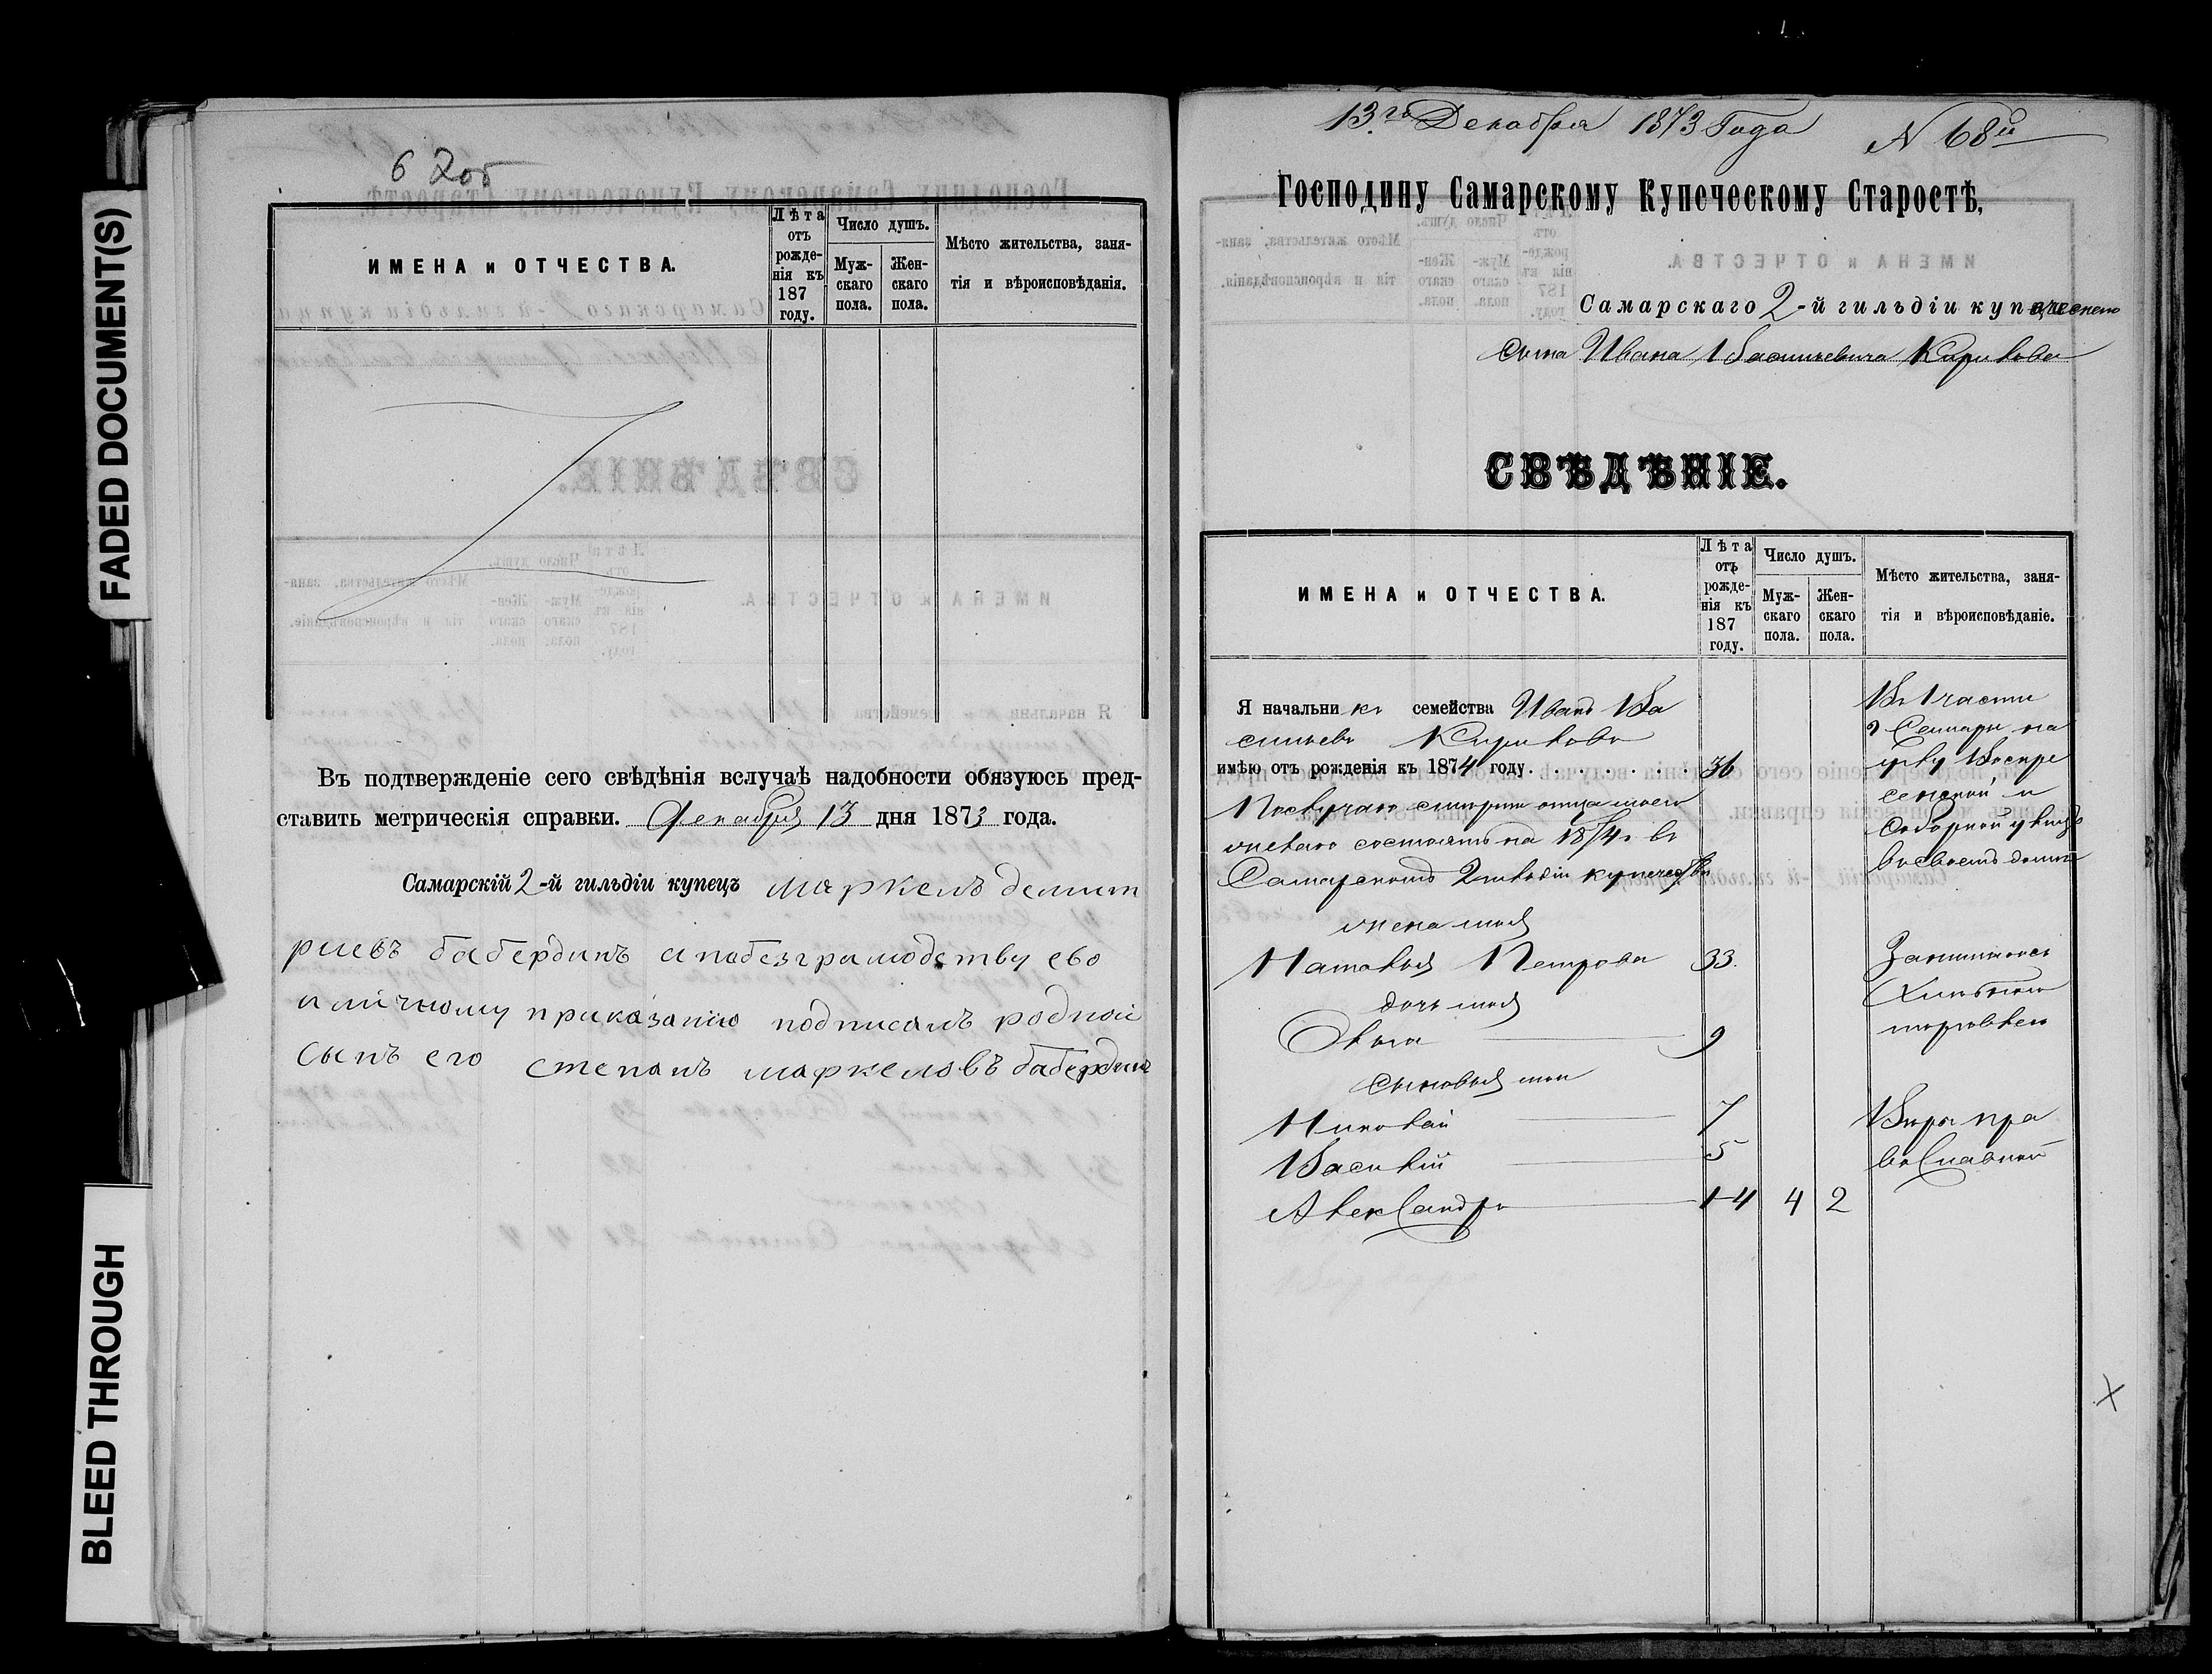 FADED DOCUMENT(S)
BLEED THROUGH
62об
ИМЕНА и ОТЧЕСТВА.
Лѣта отъ рожденія къ 187 году.
Число душъ.
Мужскаго пола.
Женскаго пола.
Мѣсто жительства, заня-
тія и вѣроисповѣданія.
Въ подтвержденіе сего свѣдѣнія вслучаѣ надобности обязуюсь пред-
ставить метрическія справки. Декабря 13 дня 1873 года.
Самарскій 2-й гильдіи купецъ маркелъ демит
риевъ бабердинъ а побезграмодству ево
и личному приказанию подписалъ родной
сынъ его степанъ маркеловъ бабердинъ
13го Декабря 1873 Года N 68й
Господину Самарскому Купеческому Старостѣ,
Самарскаго 2-й гильдіи купеческаго
сына Ивана Васильевича Кирилова
СВѢДѢНІЕ.
ИМЕНА и ОТЧЕСТВА.
Лѣта отъ рожденія къ 187 году.
Число душъ.
Мужскаго пола.
Женскаго пола.
Мѣсто жительства, заня-
тія и вѣроисповѣданіе.
Я начальникъ семейства Иванъ Ва
сильевъ Кириловъ
имѣю отъ рожденія къ 1874 году. 36
Послучаю смерти отца моего
желаю состоять на 1874 г. въ
Самарскомъ 2 гильдіи купечествѣ
жена моя
Наталья Петрова 33.
дочь моя
Ольга 9
сыновья мои
Николай 7
Василій 5
Александръ 1-4 4 2
Въ 1 части
г Самары на
углу Воскре
сенской и
Соборной улицъ
въ своемъ домѣ
Занимаюсь
Хлебною
торговлею
Веры пра
вославной